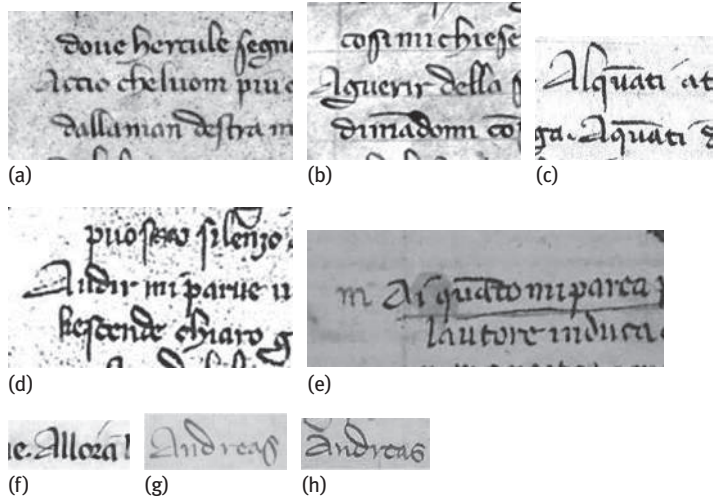 doue hercule segn
Actio cheluom piu
dallaman destra
(a)
cosi mi chiese
Aguerir della
dimādomi cō
(b)
Alquāti at
ga. Aquāti
(c)
silenzo
Audir mi parue u
scende chiaro g
(d)
m Ai quāto mi parea
lautore induca
(e)
e. Allorā
(f)
Andreas
(g)
Andreas
(h)